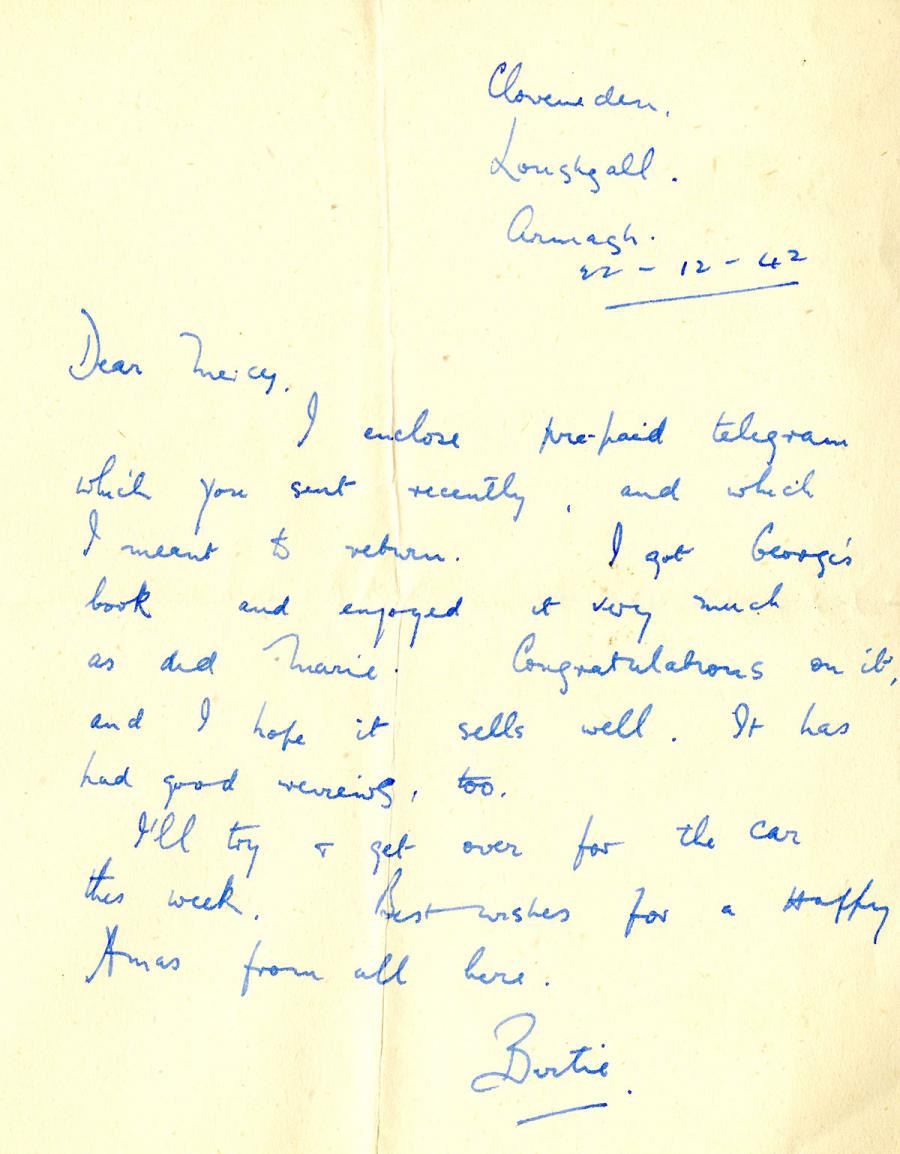 Cloveneden,
Loughgall.
Armagh.
22-12-42
Dear Mercy,
I enclose pre-paid telegram
which you sent recently, and which
I meant to return. I got George's
book and enjoyed it very much
as did Marie. Congratulations on it,
and I hope it sells well. It has
had good reviews, too.
I'll try & get over for the car
this week. Best wishes for a Happy
Xmas from all here.
Bertie.